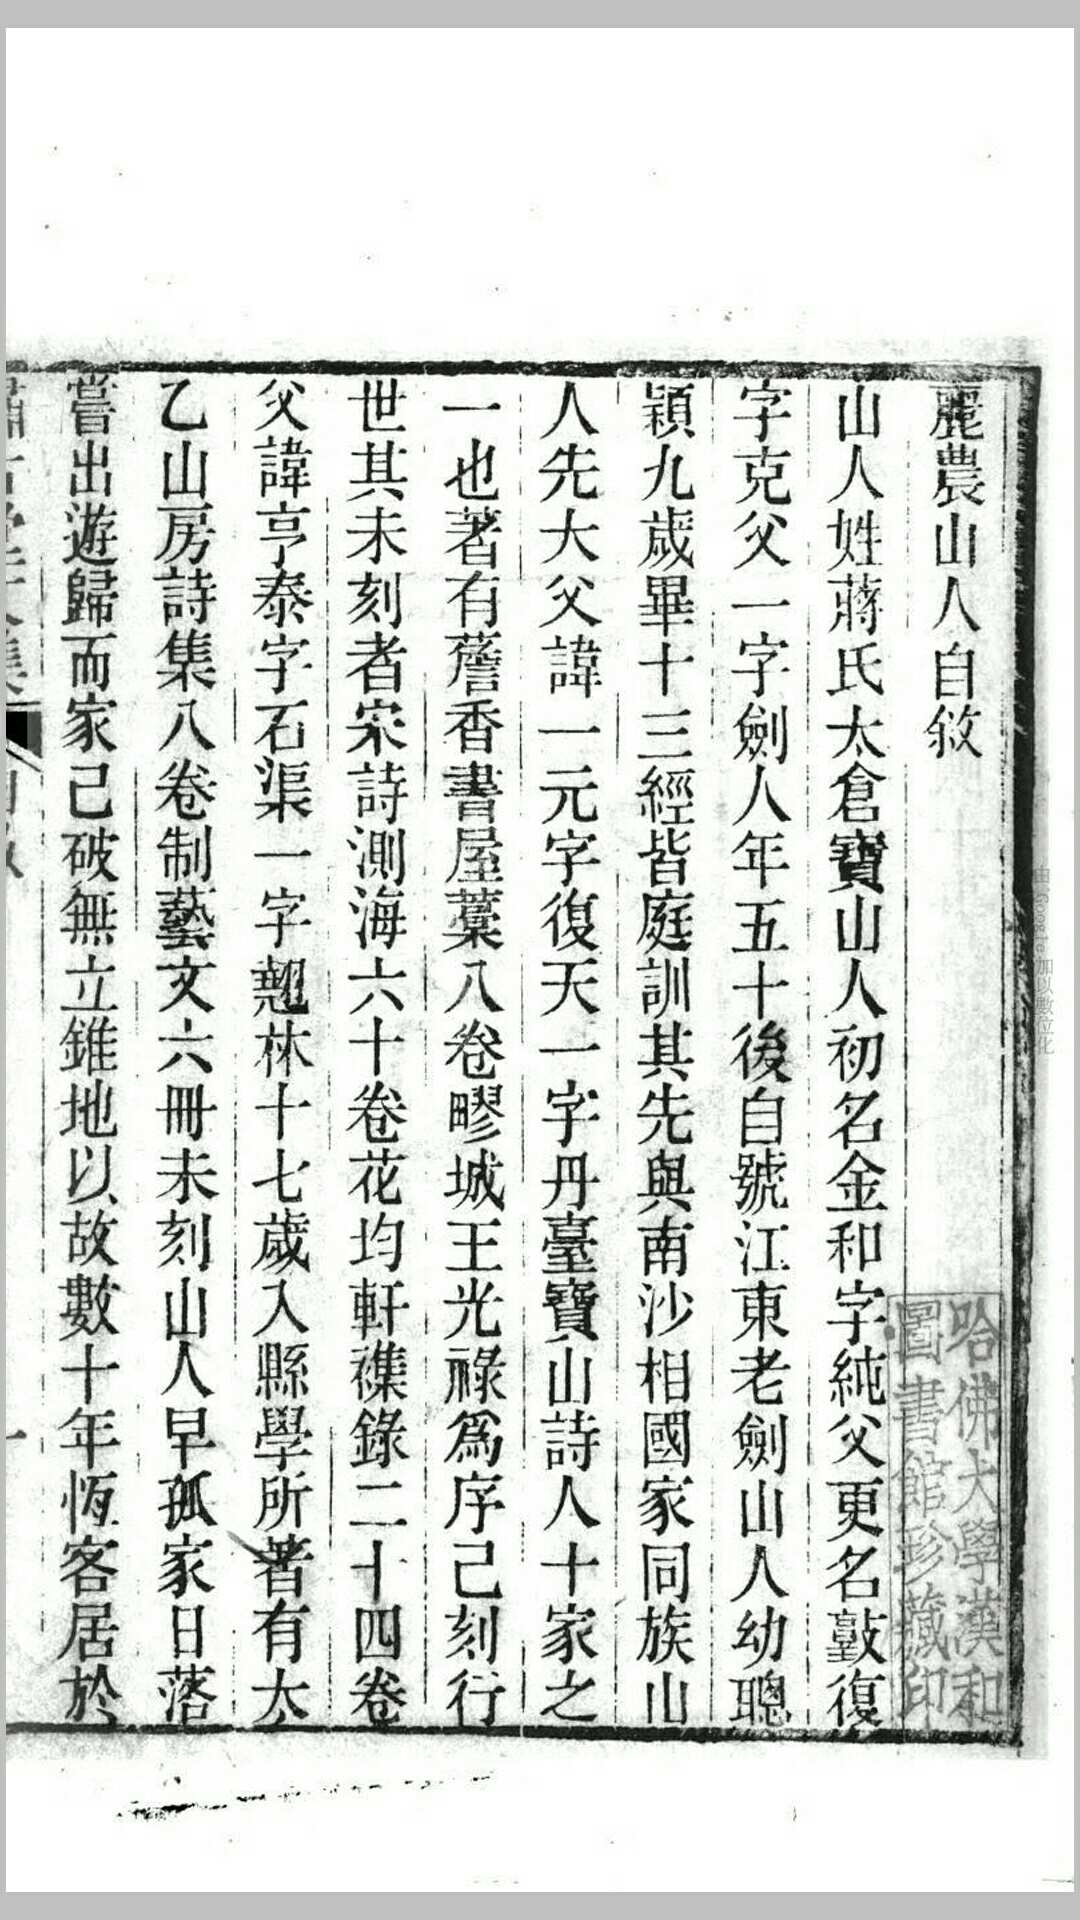 麗農山人自敘
山人姓蔣氏太倉寶山人初名金和字純父更名敦復
字克父一字劍人年五十後自號江東老劍山人幼聰
穎九歲畢十三經皆庭訓其先與南沙相國家同族山
人先大父諱一元字復天一字丹臺寶山詩人十家之
一也著有薝香書屋藁八卷疁城王光祿爲序己刻行
世其未刻者宋詩測海六十卷花均軒襍錄二十四卷
父諱亨泰字石渠一字翹林十七歲入縣學所著有太
乙山房詩集八卷制藝文六冊未刻山人早孤家日落
嘗出遊歸而家己破無立錐地以故數十年恆客居於
哈佛大學漢和
圖書館珍藏印
由 Google 加以數位化